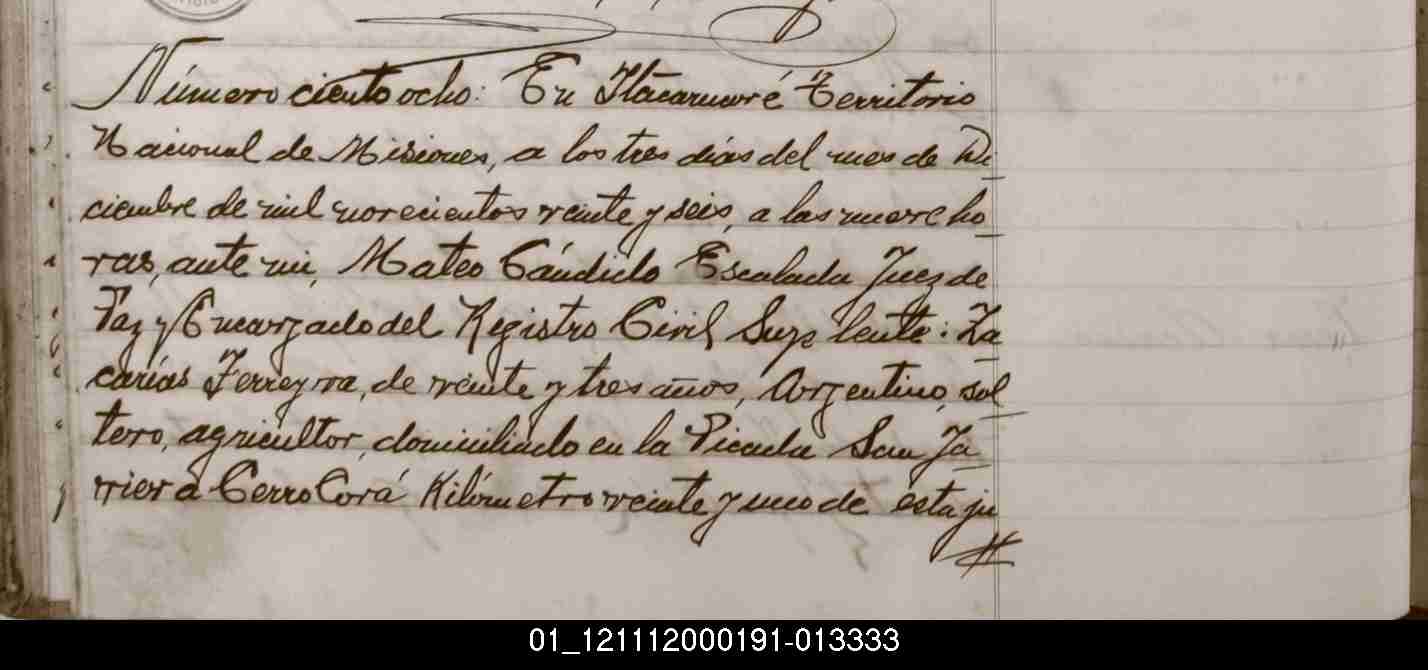 Número ciento ocho: En Itacaruaré Territorio
Nacional de Misiones, a los tres días del mes de Di
ciembre de mil novecientos veinte y seis, a las nueve ho
ras, ante mi, Mateo Cándido Escalada Juez de
Paz y Encargado del Registro Civil Suplente: Za
carías Ferreyra, de veinte y tres años, Argentino, sol
tero, agricultor, domiciliado en la Picada San Ja
vier a Cerro Corá Kilómetro veinte y uno de esta ju
01_121112000191-013333